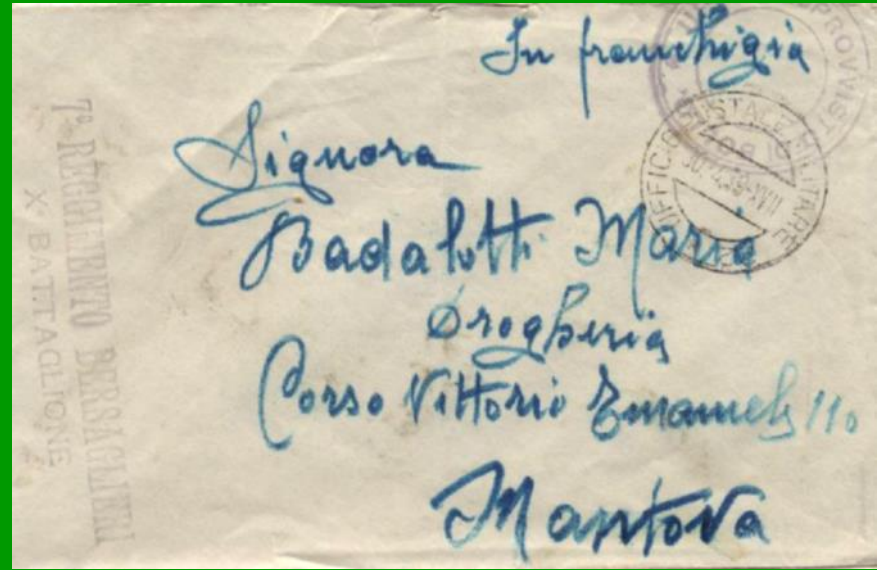 In franchigia
Signora
Badalotti Maria
Drogheria
Corso Vittorio Emanuele 110
Mantova
7° REGGIMENTO BERSAGLIERI
X° BATTAGLIONE
UFFICIO POSTALE MILITARE